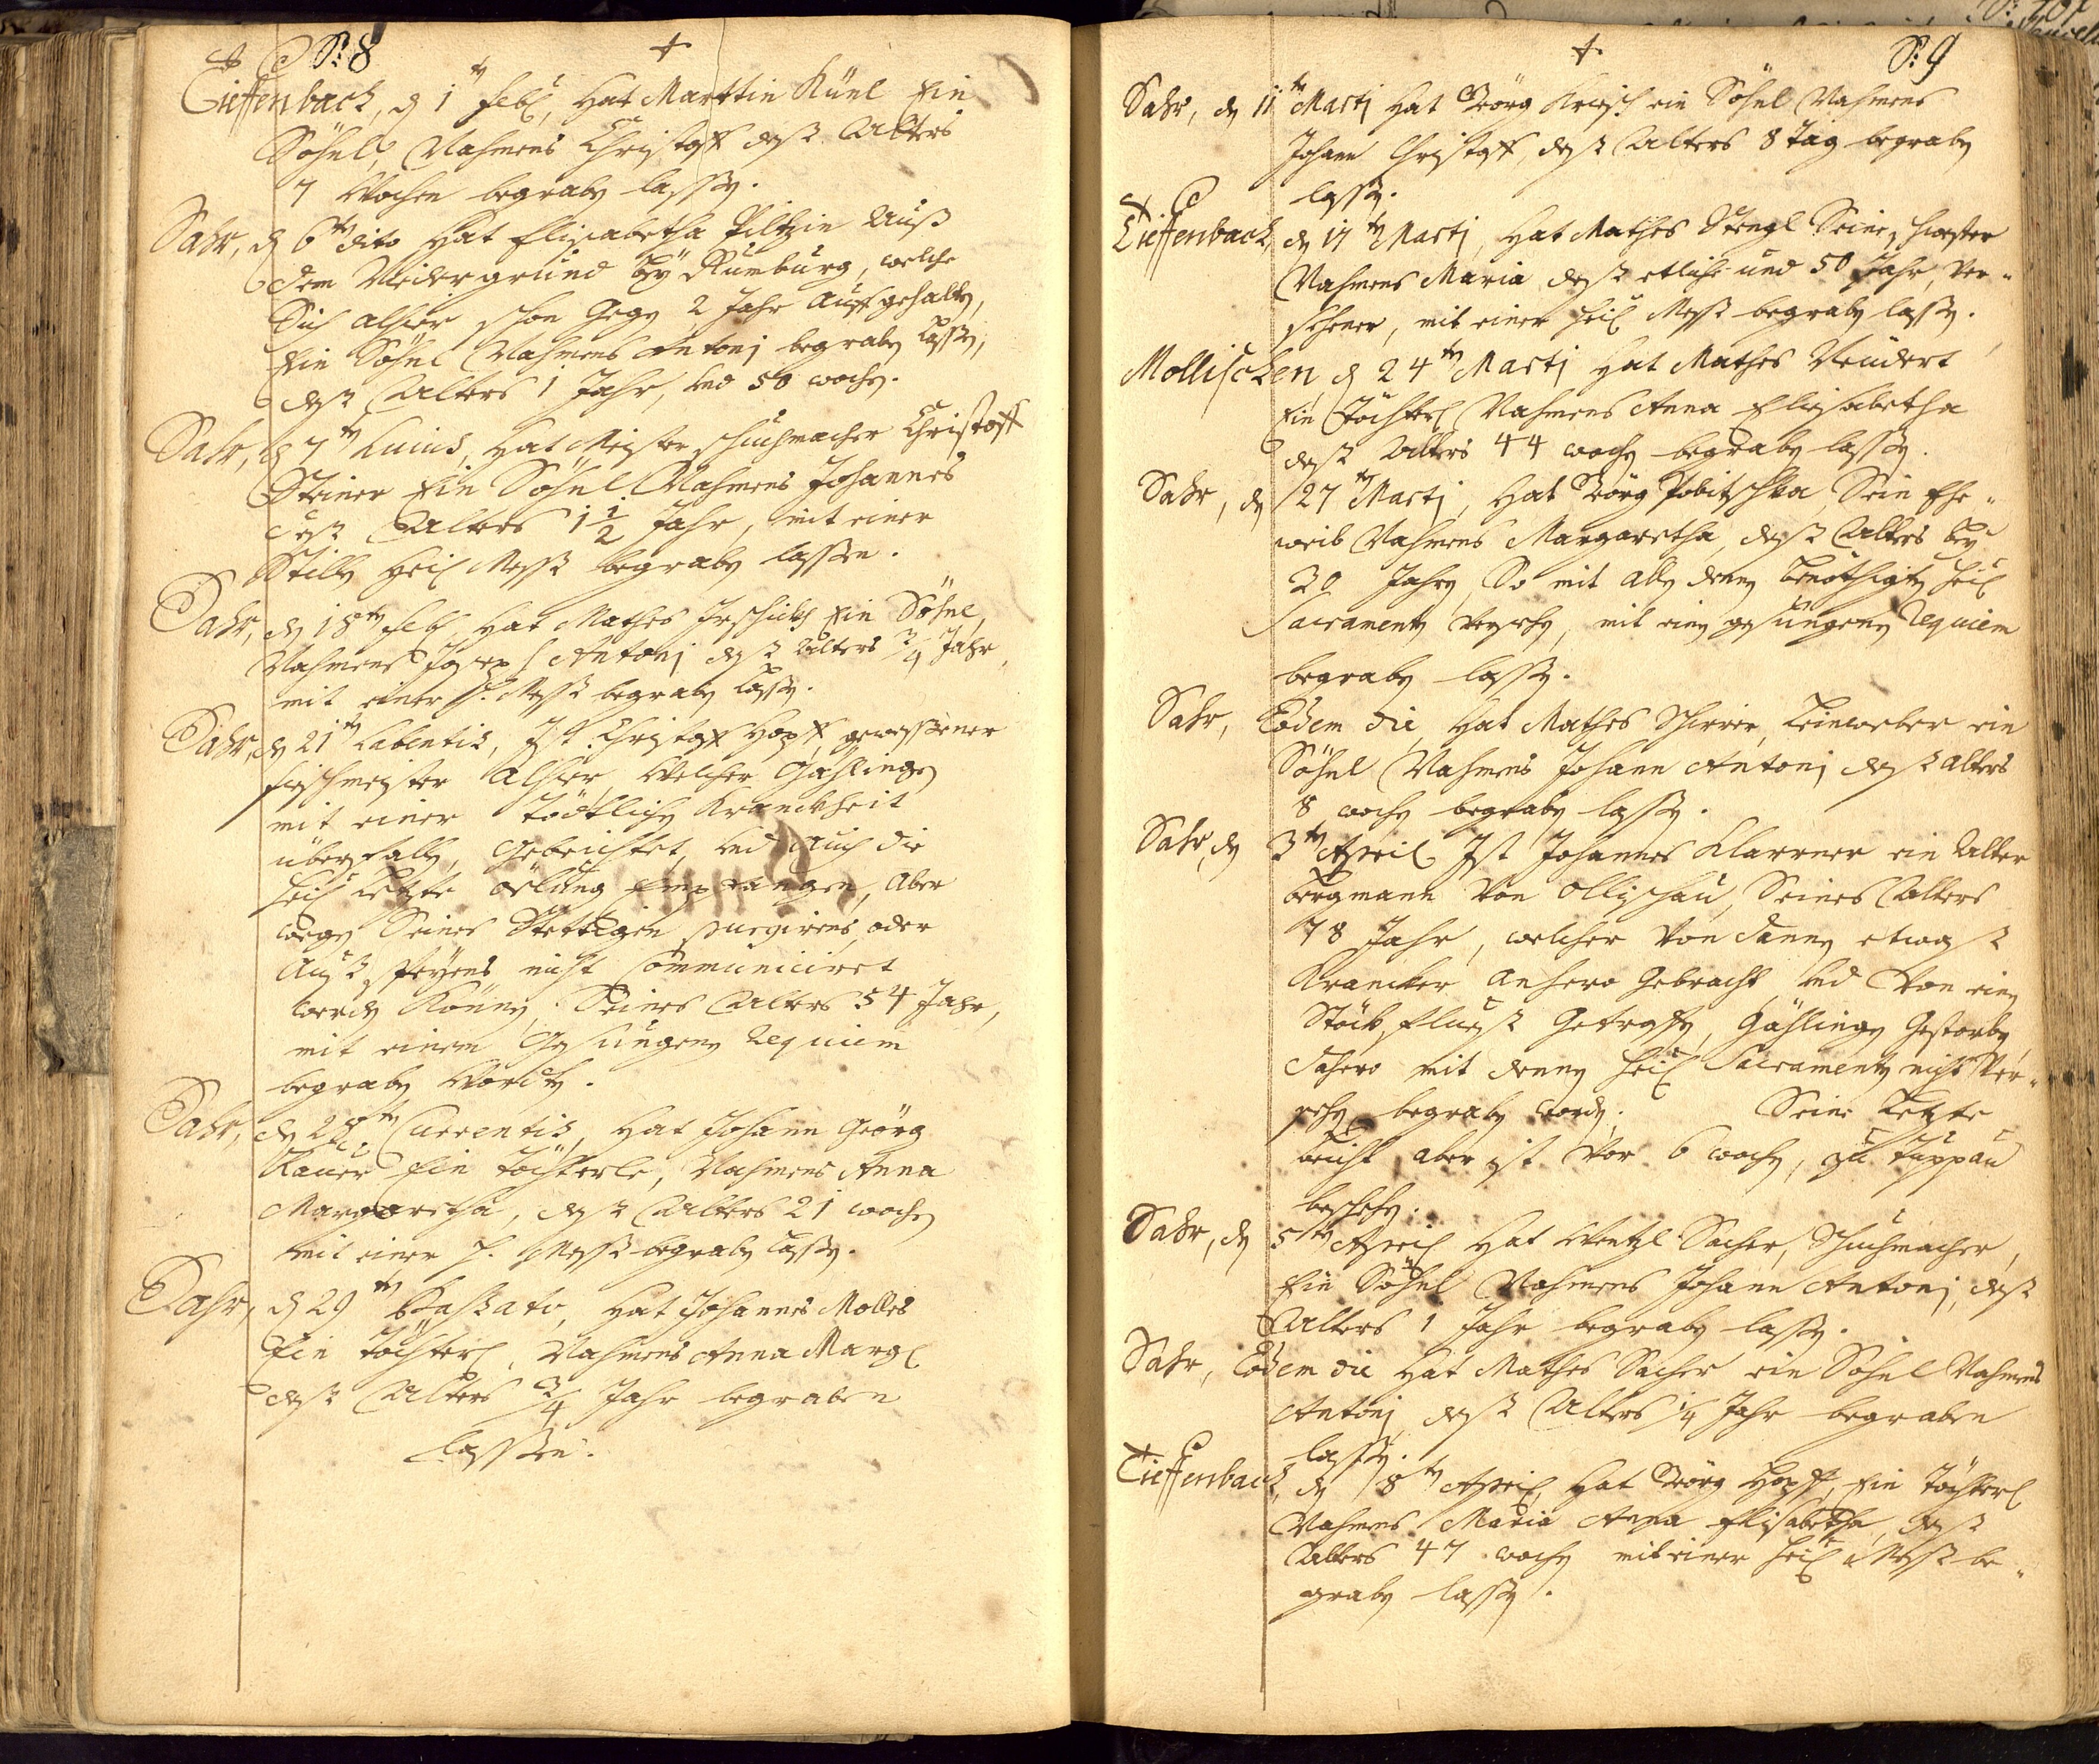 S: 8
Tieffenbach, den 1 ten Feb: Hat Marttin Künl Ein
Söhnl, Nahmens Christoff deß Alters
7 Wochen begraben lassen.
Sahr, den 6 ten dito Hat Elisabetha Piltzin Auß
dem Nidergrund bey Rumburg, welche
Sich alhier schon Gegen 2 Jahr Aufgehalten,
Ein Söhnl Nahmens Antonj begraben lassen,
deß Alters 1 Jahr, und 50 wochen.
Sahr, den 7 ten huius, Hat Meister Schuhmacher Christoff
Steiner Ein Söhnl Nahmens Johannes
deß Alters 1 1/2 Jahr, mit einer
Stillen Heil Meß begraben lassen.
Sahr, den 18 ten Feb Hat Mathes Ein Söhnl,
Nahmens Joseph Antonj deß Alters 3/4 Jahr,
mit einer H. Meß begraben lassen.
Sahr, den 21 ten Labentis, Ist Christoff Hopff, gewessener
Fischmeister Alhier, Welcher Gählingen
mit einer tödtlichen Kranckheit
überfallen, Gebeichtet, und Auch die
Heil Letzte öelung Empfangen, Aber
wegen Seines Stettigen purgirens, oder
Auß speyens nicht communiciret
werden Können, Seines Alters 54 Jahr,
mit einem Gesungenen Requiem
begraben worden.
Sahr, den 28 ten Currentis, Hat Johann Geörg
Bauer Ein Töchterle, Nahmens Anna
Margaretha, deß Alters 21 wochen
mit einer H. Meß begraben lassen.
Sahr, den 29 ten Passato, Hat Johannes Molles
Ein Töchterl, Nahmens Anna Marg
deß Alters 3/4 Jahr begraben
lassen.
S: 9
Sahr, den 11 ten Martj Hat Geörg ein Söhnl Nahmens
Johann Christoff, deß Alters 8 Tag begraben
lassen.
Tieffenbach, den 17 ten Martj, Hat Mathes Stengl Seine Schwester
Nahmens Maria deß etliche und 50 Jahr, Ver-
sehener, mit einer Heil Meß begraben lassen.
Mollischen, den 24 ten Martj Hat Mathes Neudert
Ein Töchterl Nahmens Anna Elisabetha
deß Alters 44 wochen begraben lassen.
Sahr, den 27 ten Martj, Hat Geörg Pobitschka Sein Ehe-
weib Nahmens Margaretha, deß Alters bey
30 Jahren, So mit allen denen benöthigten Heil
Sacramenten Versehen, mit einem gesungenen Requiem
begraben lassen.
Sahr, Eodem die, Hat Mathes Leinweber ein
Söhnl Nahmens Johann Antonj deß alters
8 wochen begraben lassen.
Sahr, den 3 ten April Ist Johannes Klarner ein Alter
bergmann Von Ollischau, Seines Alters
78 Jahr, welcher Von dannen etwaß
Krancker anhero Gebracht und Von einem
Stöck, fluß Getroffen, Gählingen Gestorben
dahero mit denen Heil Sacramenten nicht Ver-
sehen begraben worden. Seine Letzte
beicht aber ist Vor 6 wochen, zu Duppau
beschehen.
Sahr, den 5 ten April Hat Wentzl Sacher, Schuhmacher,
Ein Söhnl Nahmens Johann Antonj, deß
Alters 1 Jahr begraben lassen.
Sahr, Eodem die Hat Mathes Sacher ein Söhnl Nahmens
Antonj deß Alters 1/4 Jahr begraben
lassen.
Tieffenbach, den 8 ten April, Hat Geörg Hopff, Ein Töchterl
Nahmens Maria Anna Elisabetha, deß
Alters 47 wochen mit einer Heil Meß be-
graben lassen.